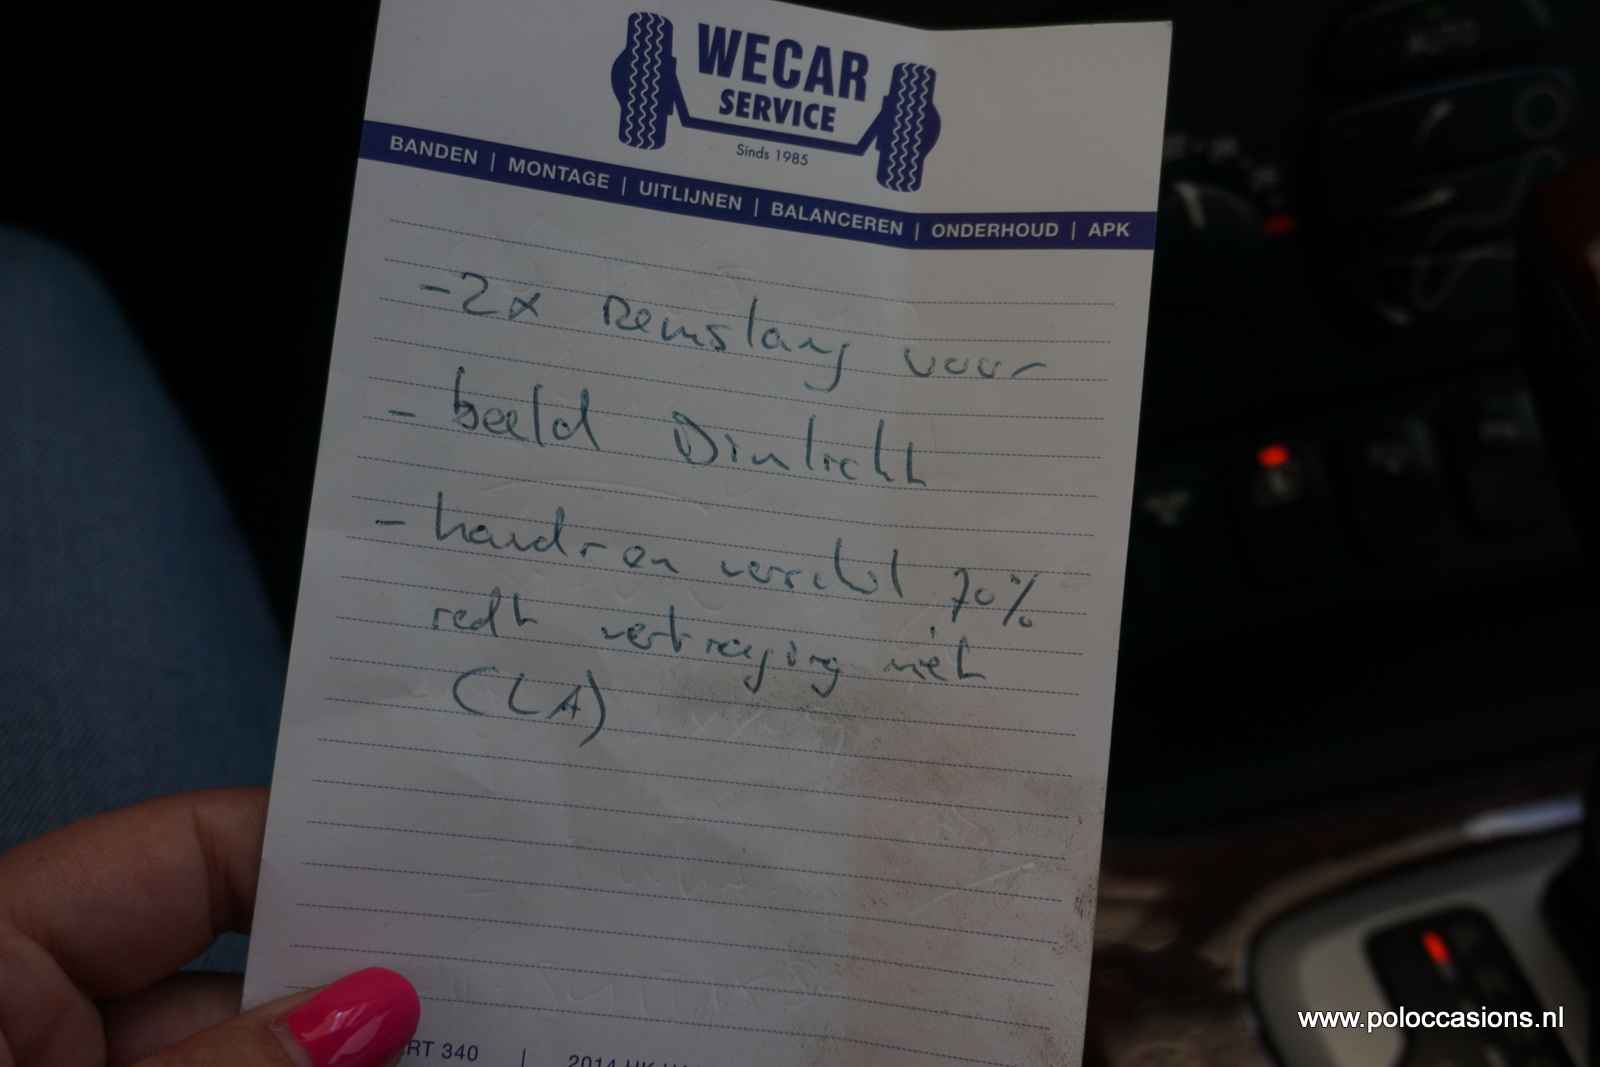 WECAR
SERVICE
Sinds 1985
BANDEN | MONTAGE | UITLIJNEN | BALANCEREN | ONDERHOUD | APK
- 2x Remslang voor
- beeld Dimlicht
- handrem verschil 70%
redt vertraging niet
(LA)
RT 340 | 2014
AUTO
www.poloccasions.nl